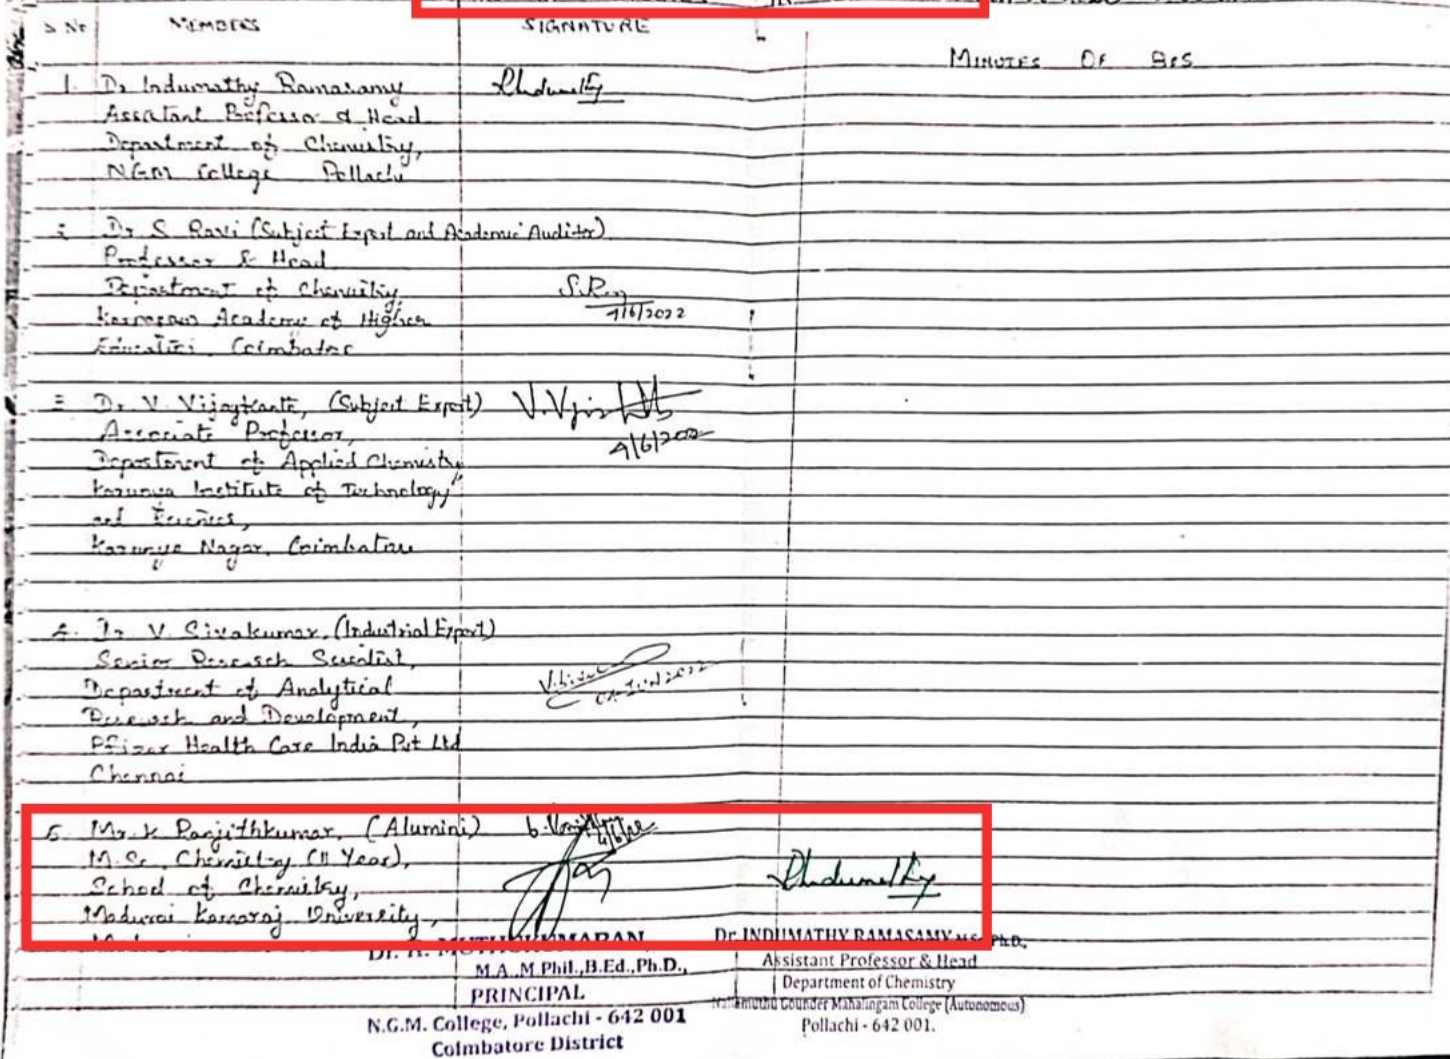 S.No MEMBERS SIGNATURE
MINUTES OF BOS
1. Dr Indumathy Ramasamy
Assistant Professor & Head
Department of Chemistry,
NGM College Pollachi
2 Dr S Ravi (Subject Expert and Academic Auditor)
Professor & Head
Department of Chemistry,
Karpagam Academy of Higher
Education, Coimbatore
S.Ravi
4/6/2022
3 Dr. V. Vijaykanth, (Subject Expert)
Associate Professor,
Department of Applied Chemistry
Karunya Institute of Technology
and Sciences,
Karunya Nagar, Coimbatore
4/6/2022
4. Dr V. Sivakumar, (Industrial Expert)
Senior Research Scientist,
Department of Analytical
Research and Development,
Pfizer Health Care India Pvt Ltd
Chennai
04-JUN 2022
5. Mr. K Ranjithkumar, (Alumini)
M.Sc, Chemistry (II Year),
School of Chemistry,
Madurai Kamaraj University,
4/6/22
M.A.,M.Phil.,B.Ed.,Ph.D.,
PRINCIPAL
N.G.M. College, Pollachi - 642 001
Coimbatore District
Dr. INDUMATHY RAMASAMY M.Sc.,Ph.D.,
Assistant Professor & Head
Department of Chemistry
Nallamuthu Gounder Mahalingam College (Autonomous)
Pollachi - 642 001.